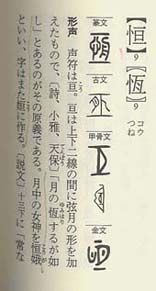 【恒】9【恆】9 コウ つね
篆文 古文 甲骨文 金文
形声 声符は亘。亘は上下二線の間に弦月の形を加
えたもので、〔詩、小雅、天保〕「月の恆するが如
し」とあるのがその原義である。月中の女神を恒娥
といい、字はまた姮に作る。〔説文〕十三下に「常な